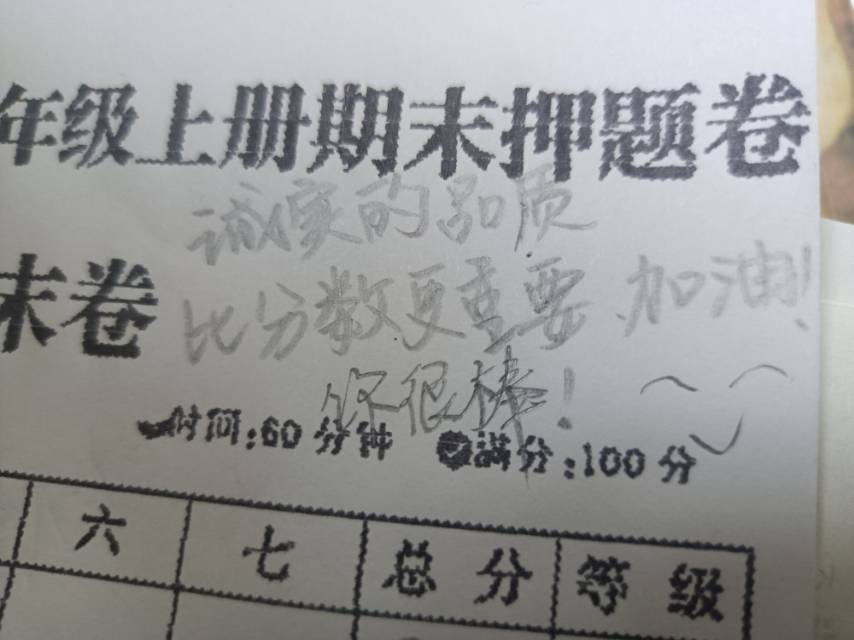 年级上册期末押题卷
诚实的品质
末卷
比分数更重要 加油!
你很棒!
时间:60分钟 满分:100分
六 七 总分 等级